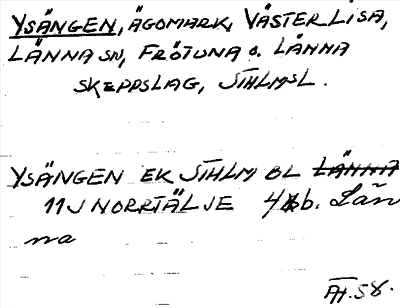 YSÄNGEN, ÄGOMARK, VÄSTERLISA,
LÄNNA SN, FRÖTUNA O. LÄNNA
SKEPPSLAG, STHLMSL.
YSÄNGEN EK STHLM BL LÄNNA
11J NORRTÄLJE 4b. Län
na
ÅH.58.